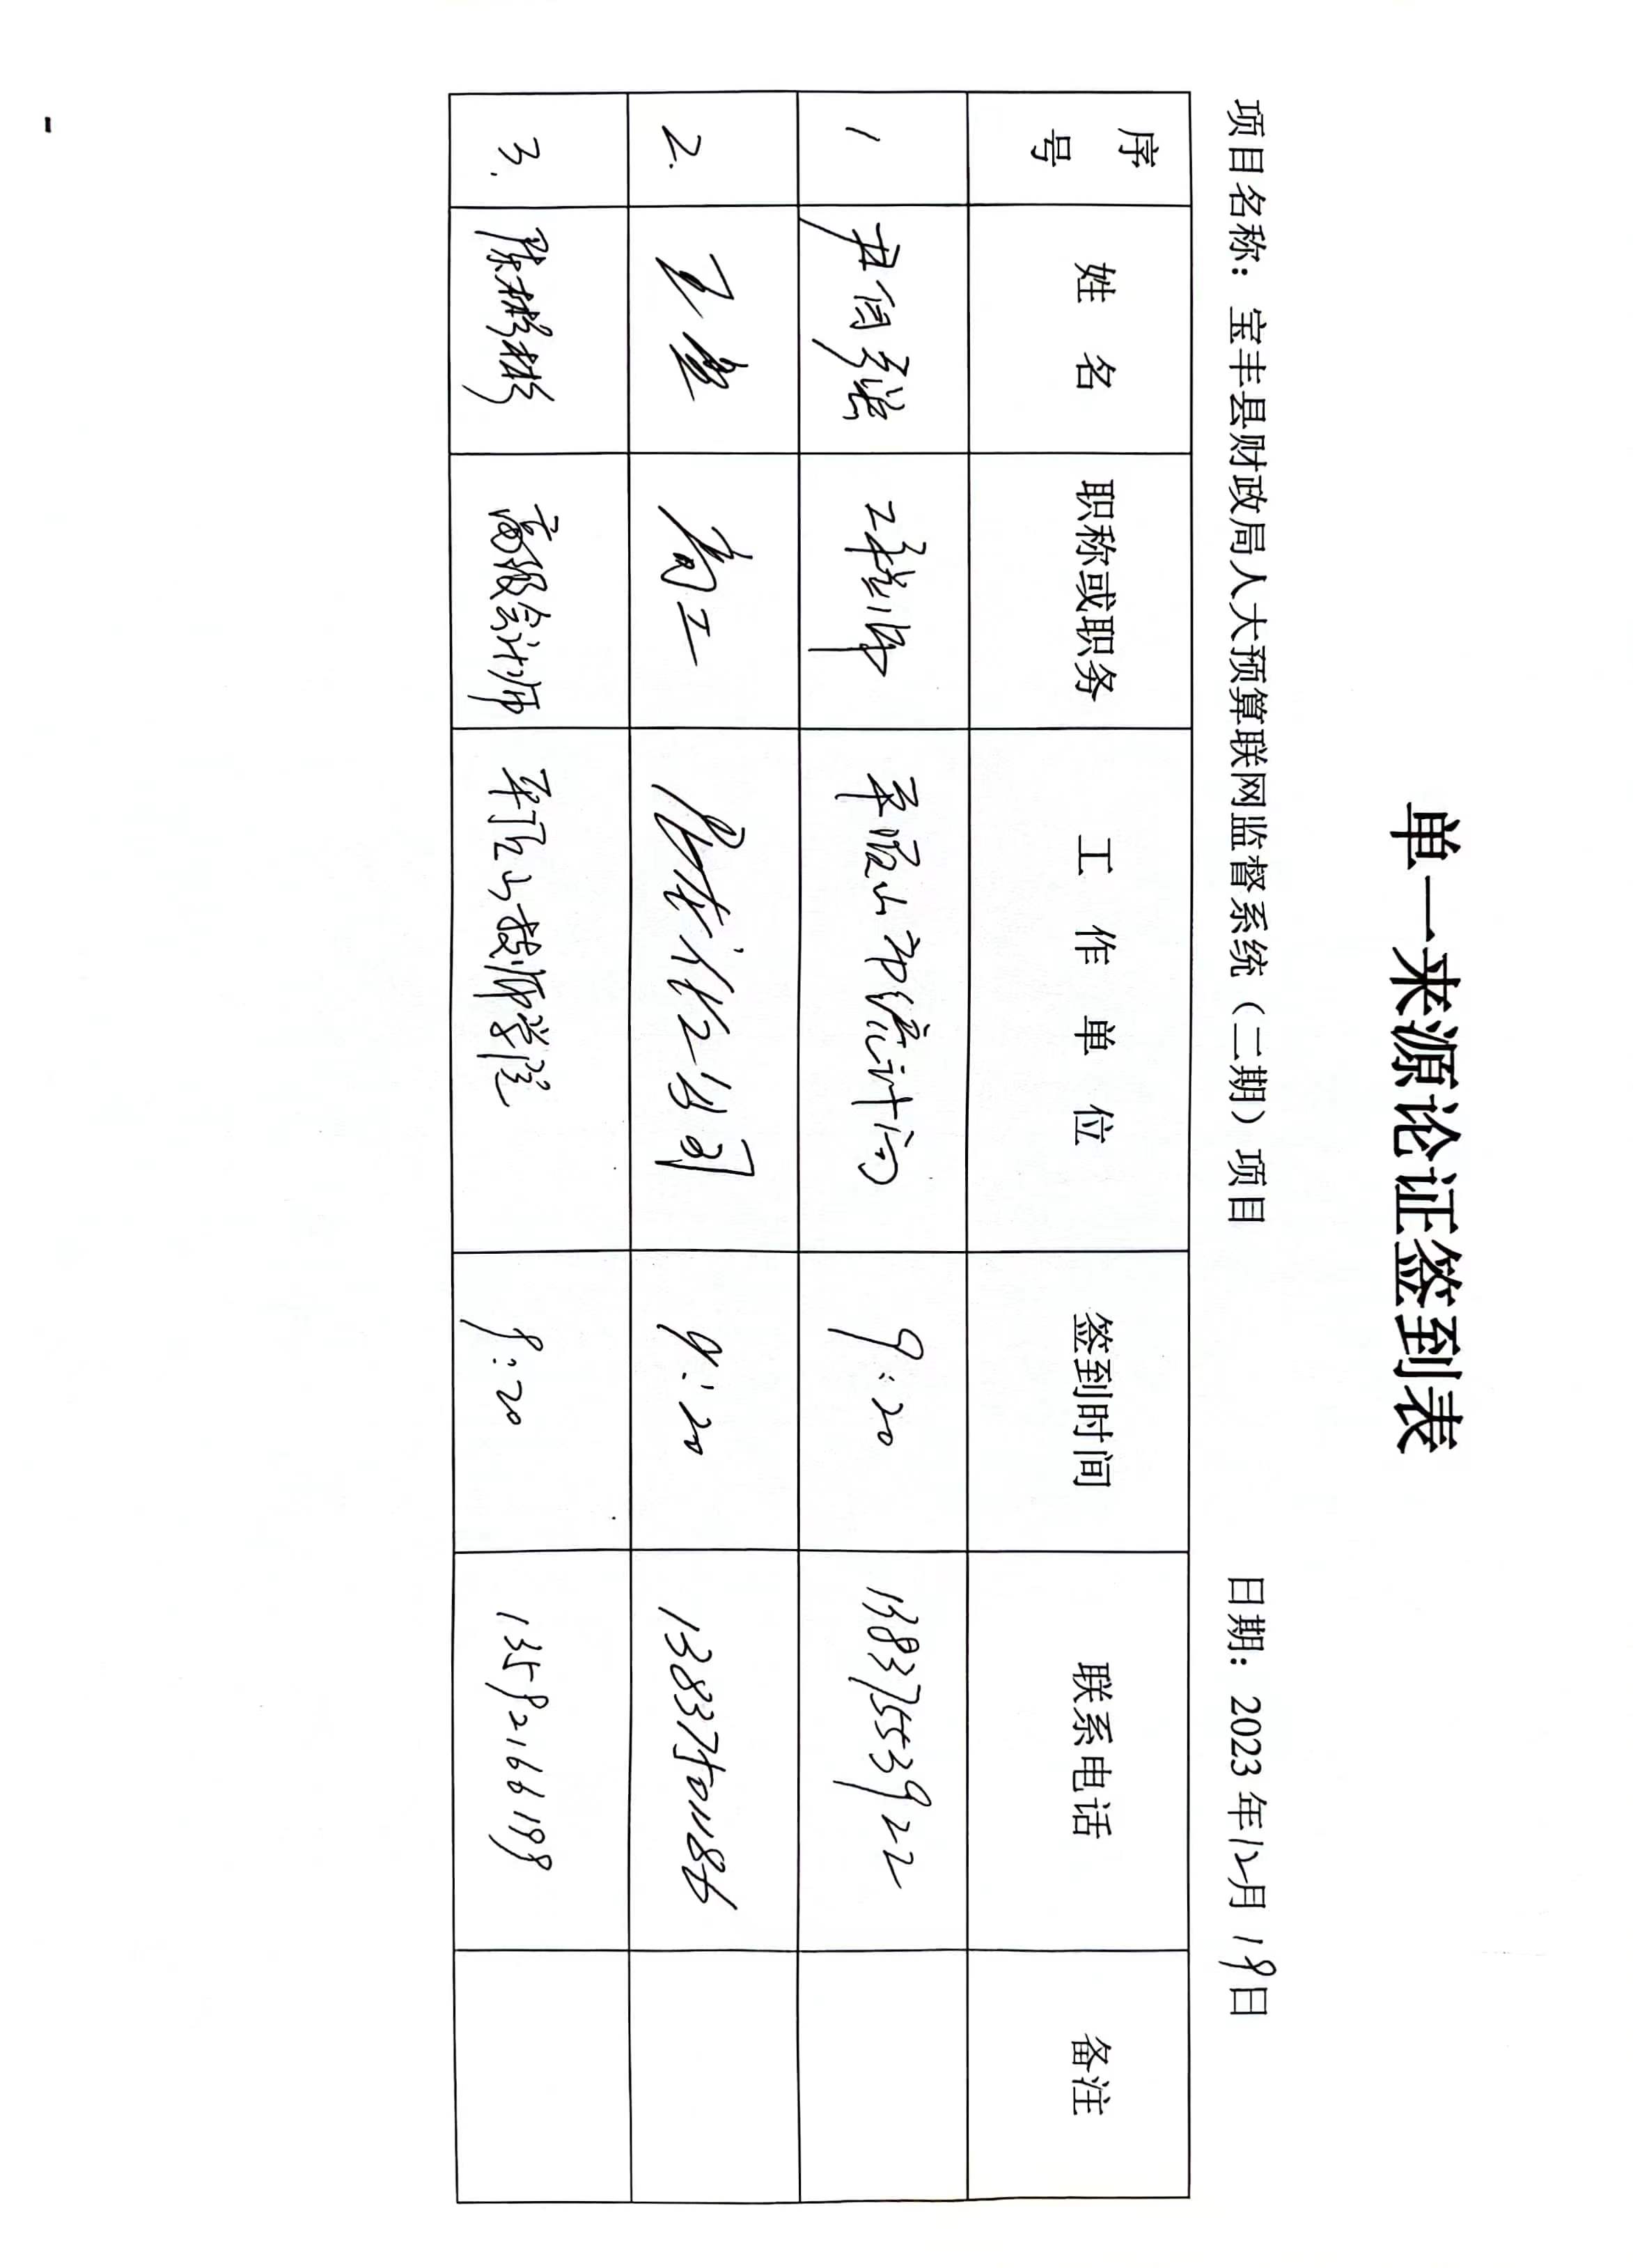 单一来源论证签到表
项目名称：宝丰县财政局人大预算联网监督系统（二期）项目 日期：2023年12月19日
序号 姓名 职称或职务 工作单位 签到时间 联系电话 备注
1 工程师 平顶山市统计局 9:20 13837553922
2. 王 高工 公司 9:20 13837501186
3. 陈彬彬 高级会计师 平顶山技师学院 9:20 13592166199